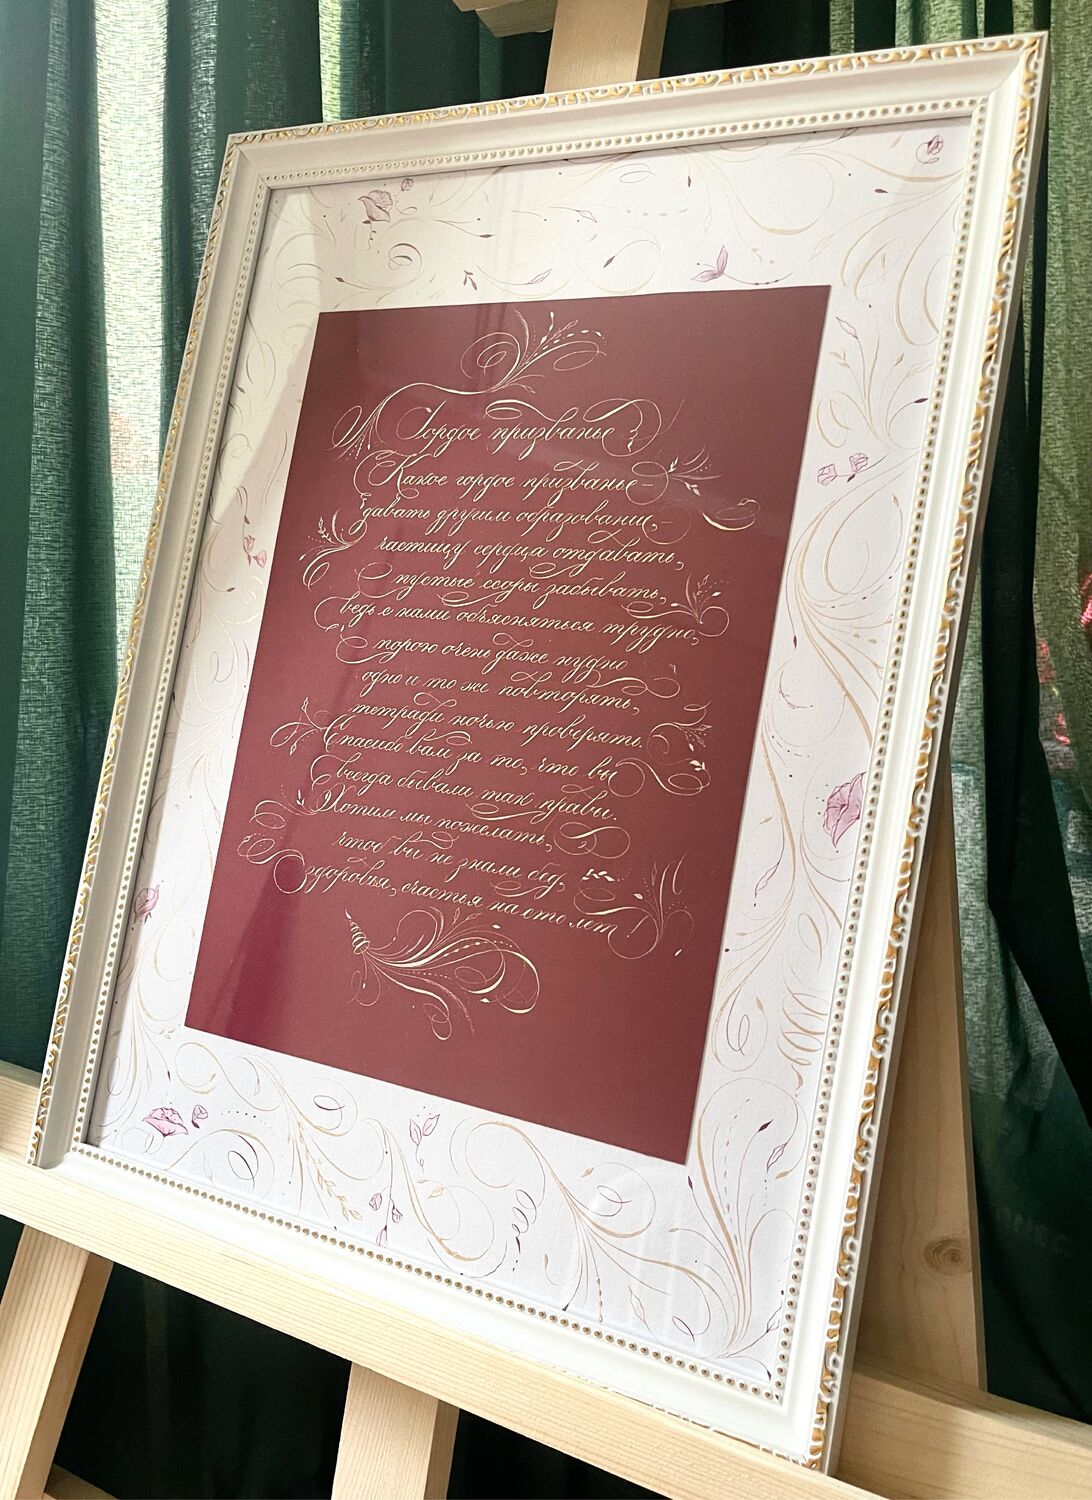 Гордое призванье!
Какое гордое призванье –
давать другим образование, –
частицу сердца отдавать,
пустые ссоры забывать,
ведь с нами объясняться трудно,
порою очень даже нудно
одно и то же повторять,
тетради ночью проверять.
Спасибо вам за то, что вы
всегда бывали так правы.
Хотим мы пожелать,
чтоб вы не знали бед,
Здоровья, счастья на сто лет!